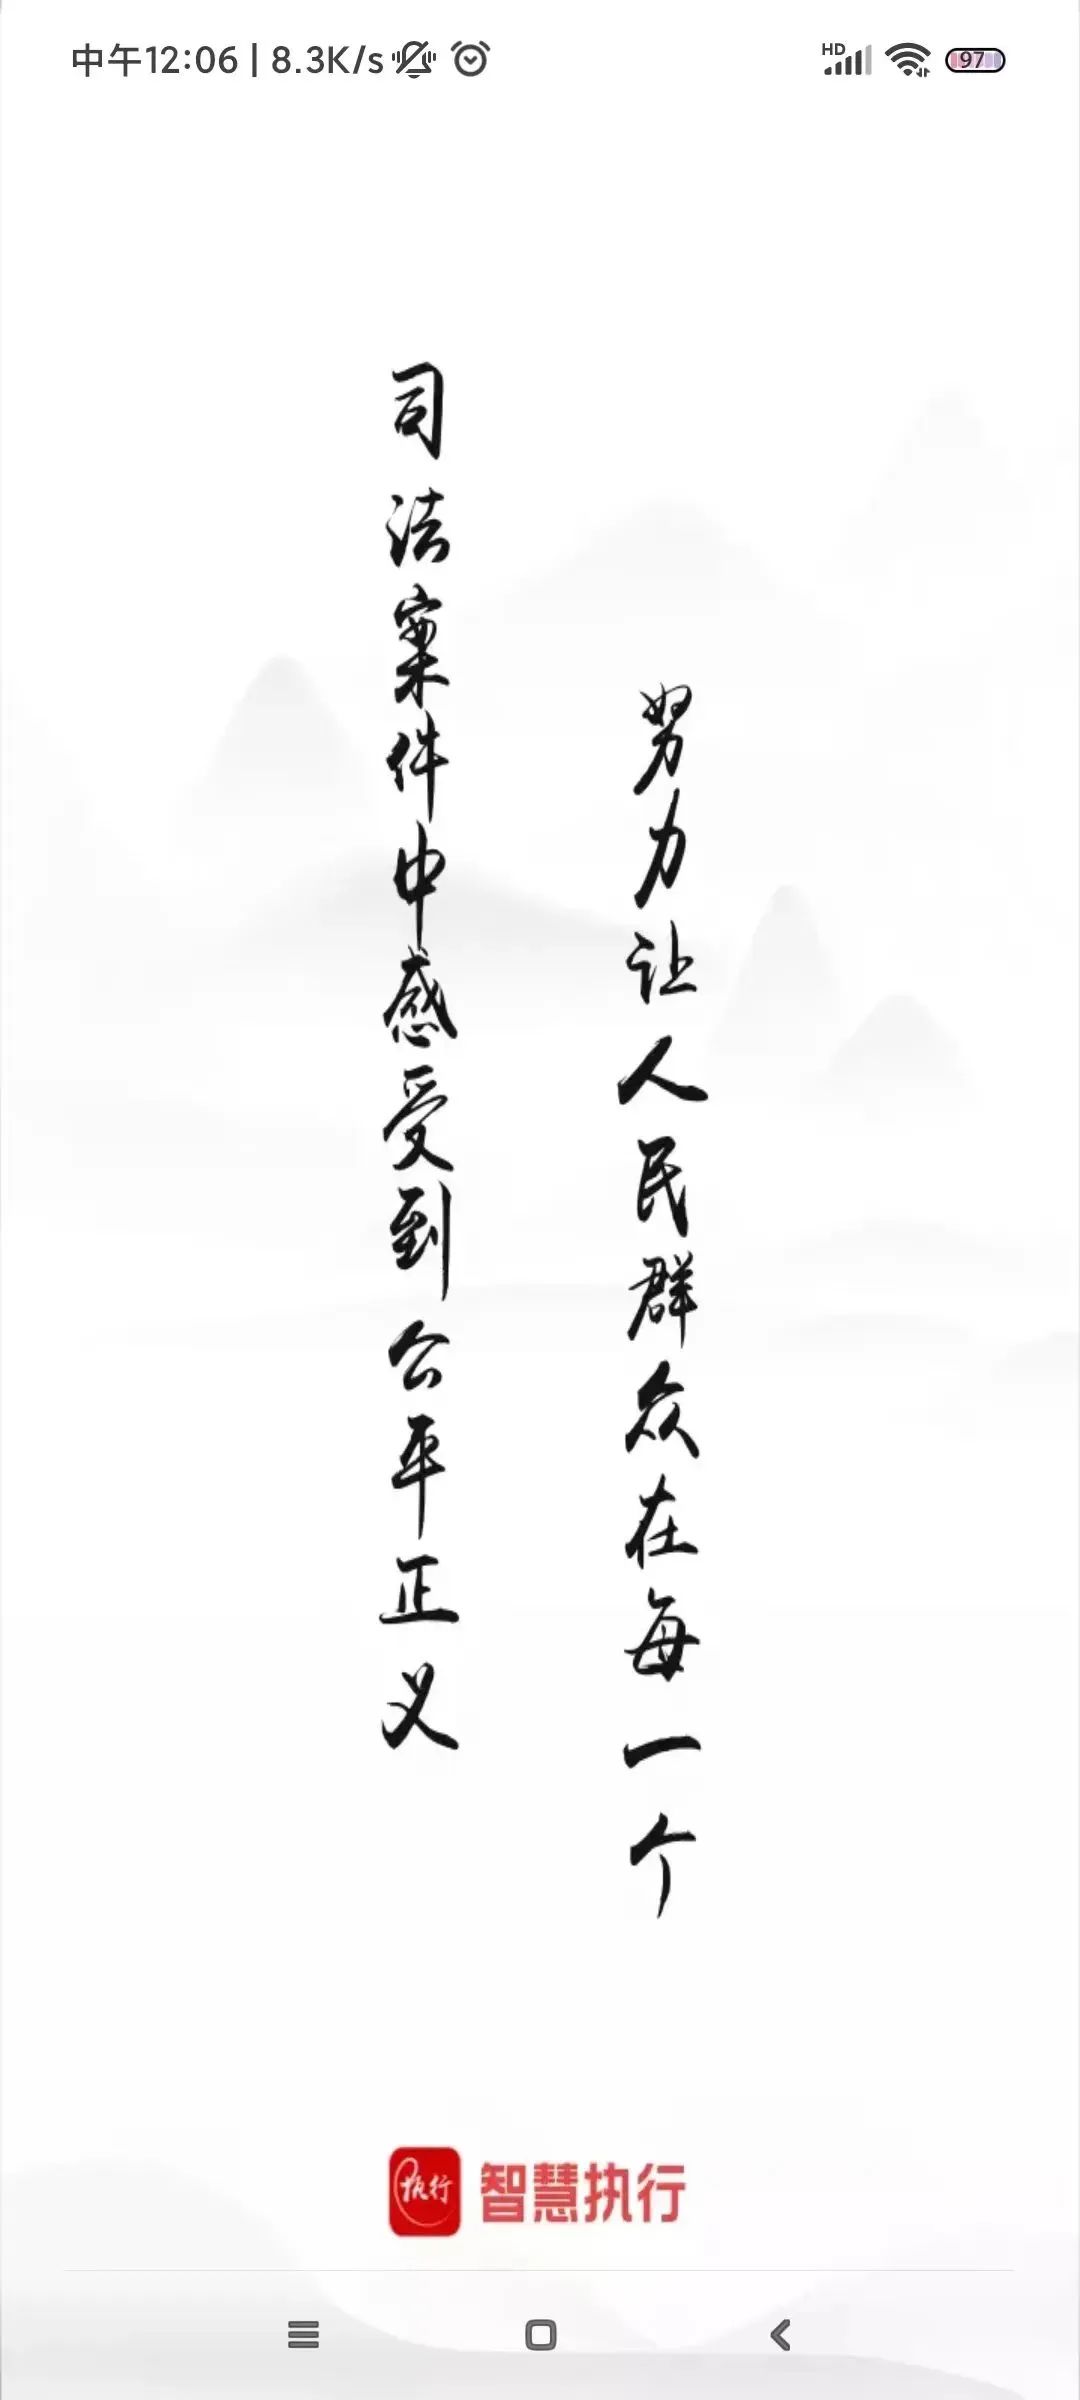 中午12:06 | 8.3K/s
HD
97
努力让人民群众在每一个
司法案件中感受到公平正义
执行
智慧执行